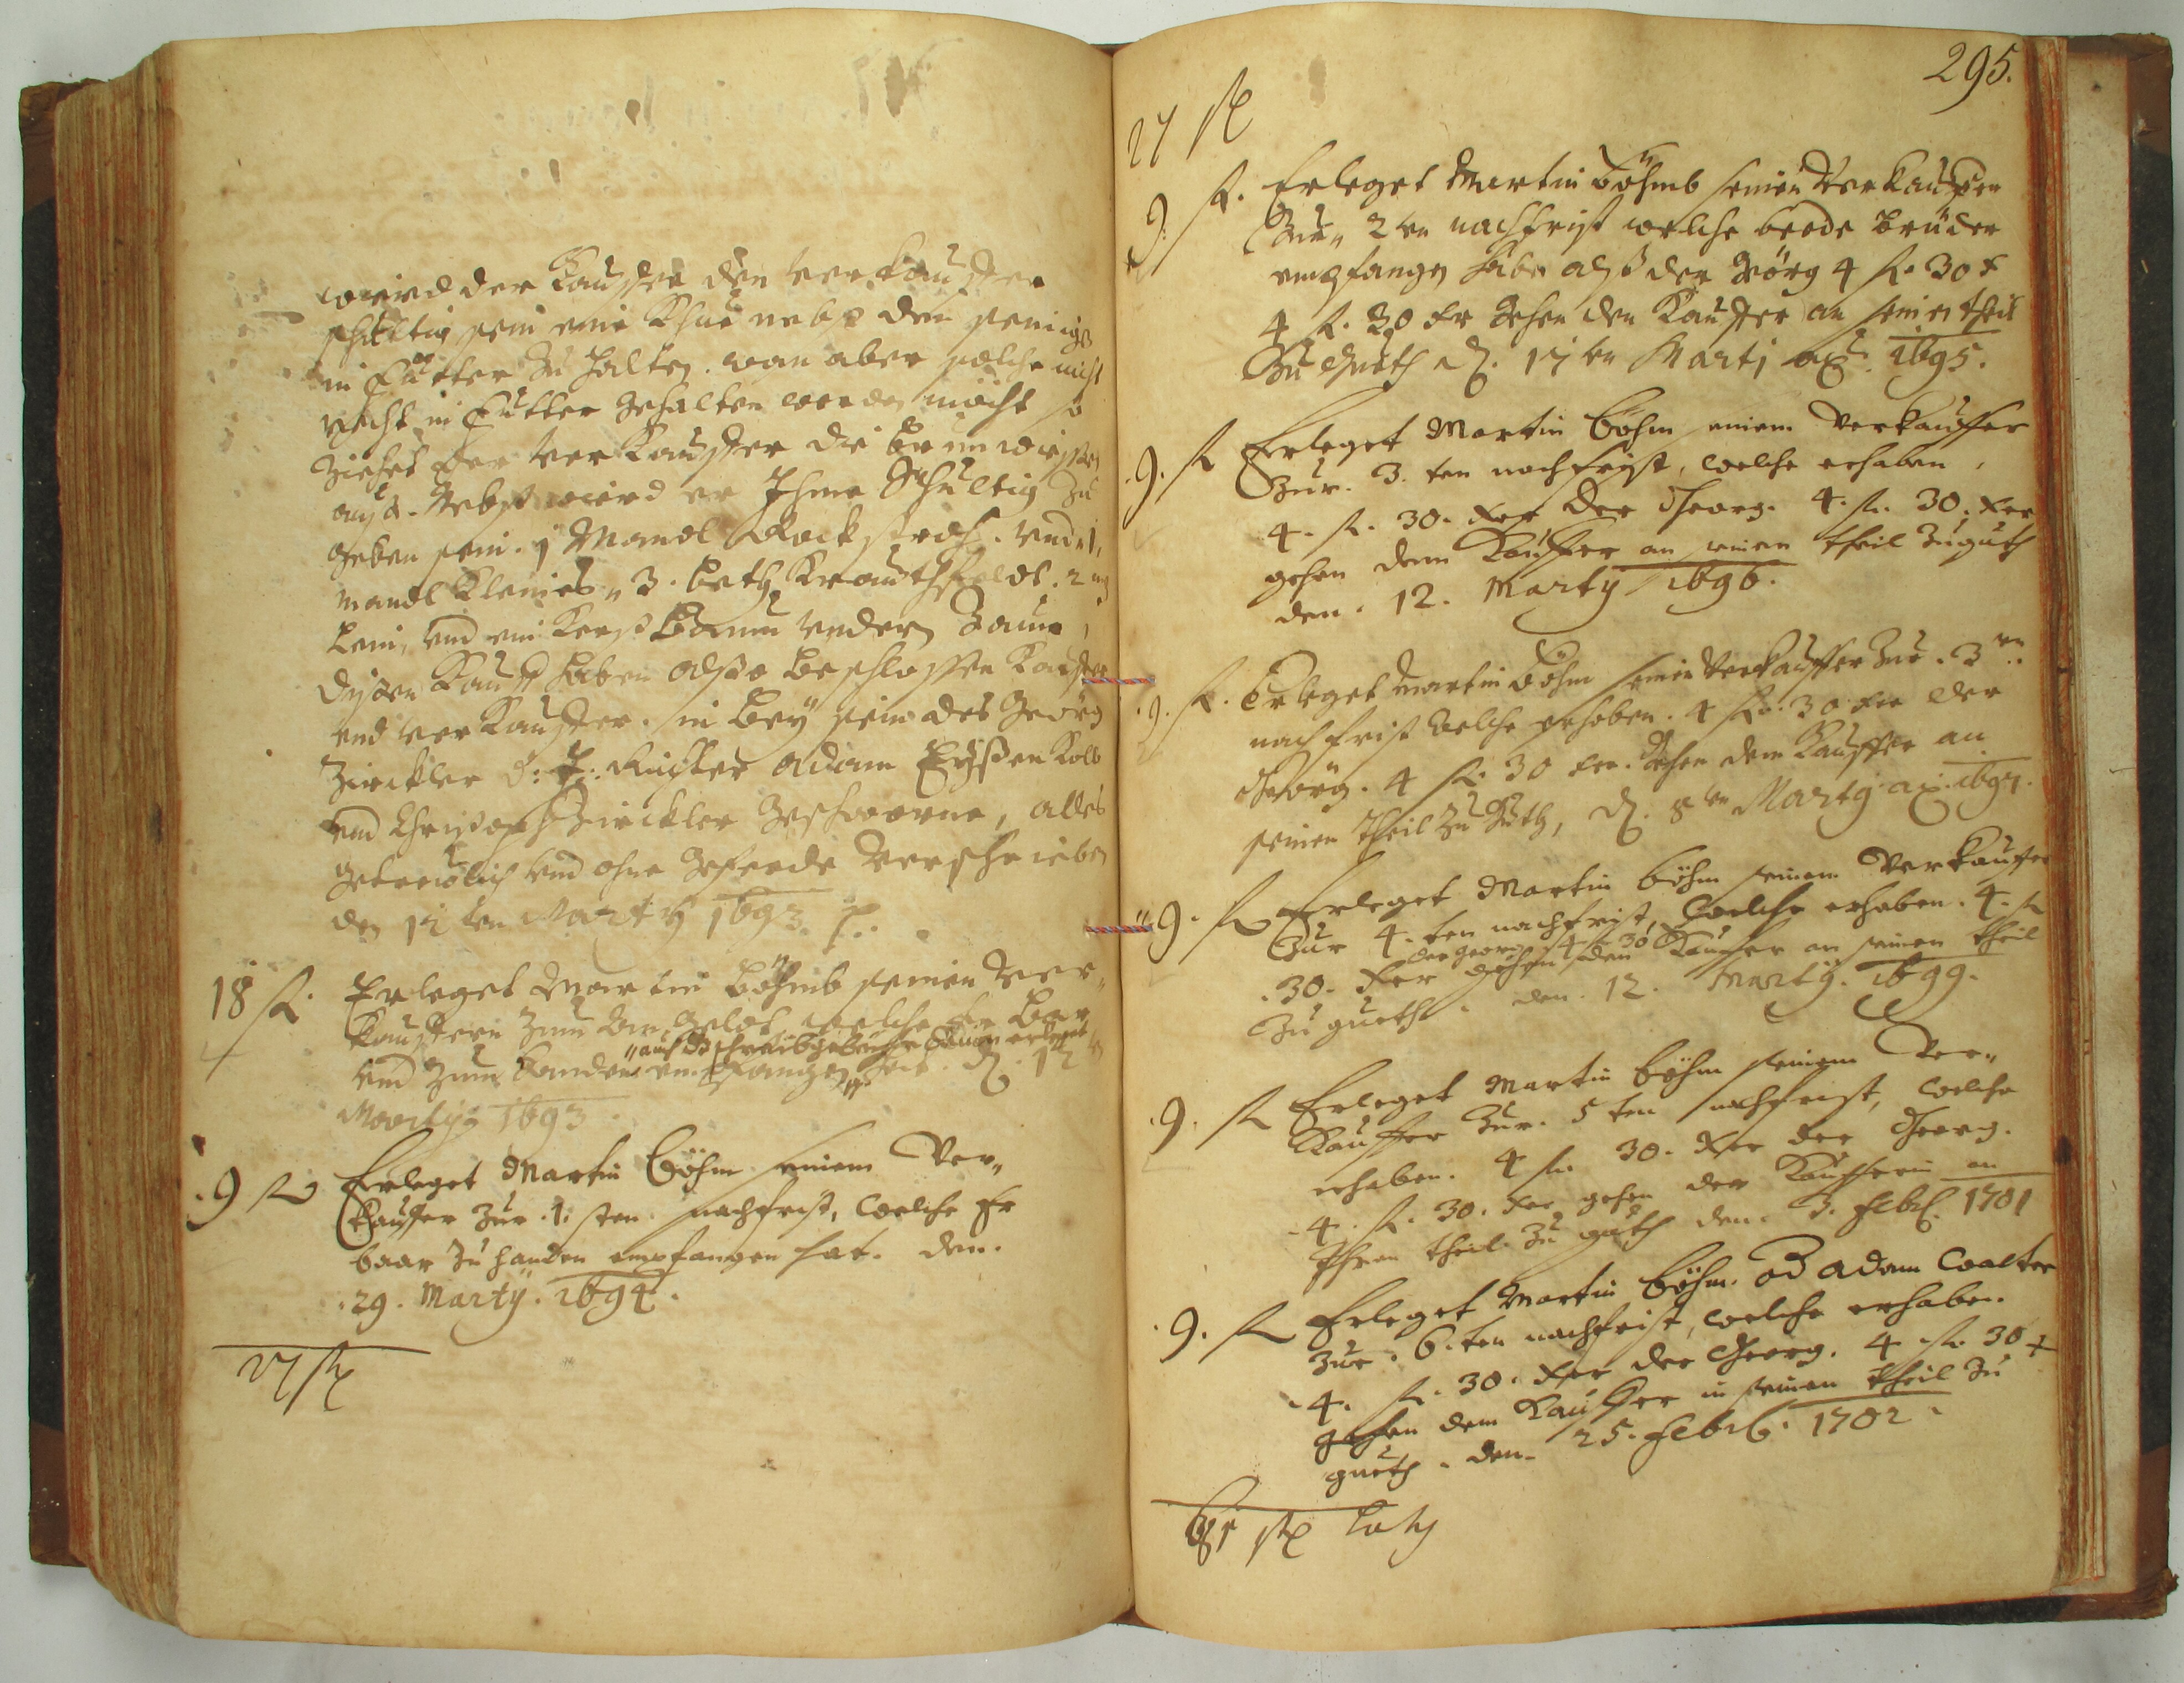 wird der Kauffer den Verkauffer
schultig sein eine Khue nebst den seinigen
in Futter zu halten. wan aber solche nicht
recht in Futter gehalten werden möcht so
ziehet der Verkauffer die Brunwiesen
auß. Nebst wird er Ihme Schultig zu
geben sein. 1 Mandl Rockstroh. und 1.
mandl Kleines, 3. beth Krauthfeldt. 2
Lein, und ein Kerschbaum undern Zaun,
dysen Kauff haben alßo beschlossen Kauffer
und Verkauffer. in beysein des Geörg
Zirckler d: Z: Richter Adam Eyßenkolb
und Christoph Zirckler Geschworne, alles
getreulich und ohne geferde verschrieben
den 12 ten Marty 1693.
18 fl. Erleget Martin Böhmb seinen Ver„
kauffern zum An geldt, welche Er Bar
„auch die schreibgebühr
und zum handen empfangen hat. d. 12
Martys 1693
.9 fl Erleget Martin Böhm seinem Ver„
kauffer zur .1. sten. nachfrist, welche Er
baar zu handen empfangen hat. den.
.29. Martÿ. 1694.
27 fl
295.
27 fl
9. fl. Erleget Martin Böhmb seinen Verkauffer
Zur„ 2 ten nachfrist welche beede brüder
empfangen haben alß der Görg 4 fl. 30 x
4 fl. 30 xr gehen den Kauffer an seinen theil
zu Gueth d. 17 ten Martj ao. 1695.
.9. fl Erleget Martin Böhm seinem Verkauffer
Zur. 3. ten nachfrist, welche erhaben,
4. fl. 30. xer der Georg. 4. fl. 30. xer
gehen dem Kauffer an seinen theil zuguth
den. 12. Martÿ 1696.
.9. fl. Erleget Martin Böhm seinen Verkauffer Zur. 3 ten.
nachfrist welche erhoben. 4 fl. 30 xer der
Geörg. 4 fl. 30 xer. gehen dem Kauffer an
seinen theil zu Guth, d. 8 ten Marty ao. 1697.
9. fl Erleget Martin Böhm seinem Verkauffer
Zur 4. ten nachfrist, welche erhaben. 4. fl
der Georg 4 fl 30
.30. xer gehen den Kauffer an seinen theil
zu gueth. den. 12. Martÿ. 1699.
.9. fl Erleget Martin Böhm seinem Ver„
Kauffer Zur. 5 ten nachfrist, welche
erhaben. 4 fl. 30. xer der Georg.
.4. fl. 30. xer gehen der Kaufferin an
Ihren theil zu guth den. 3. Febr. 1701
.9. fl Erleget Martin Böhm. od Adam Walter
zur. 6. ten nachfrist, welche erhaben.
.4. fl. 30. xer der Georg. 4. fl. 30 x
gehen dem Kauffer in seinen theil zu
gueth. den. 25. Febr. 1702.
81 fl Laty